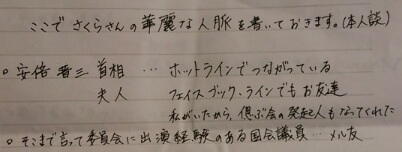 ここで さくらさんの華麗な人脈を書いておきます。(本人談)
○ 安倍 晋三 首相 … ホットラインでつながっている
夫人 フェイスブック・ラインでもお友達
私がいたから、偲ぶ会の発起人もなってくれた
○ そこまで言って委員会に出演経験のある国会議員… メル友